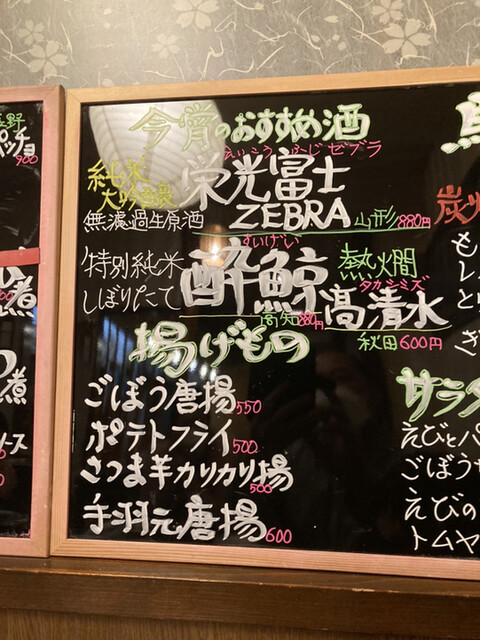 長野
ポッチョ
900
煮
煮
ソース
今宵のおすすめ酒
純米
大吟醸
えいこう ふじ ゼブラ
栄光冨士
無濾過生原酒
ZEBRA 山形 880円
特別純米
しぼりたて
すいげい
酔鯨
高知 880円
熱燗
タカシミズ
高清水
秋田600円
揚げもの
ごぼう唐揚 550
ポテトフライ 500
さつま芋カリカリ揚 500
手羽元唐揚 600
炭火
サラダ
えびとパ
ごぼうサ
えびの
トムヤ